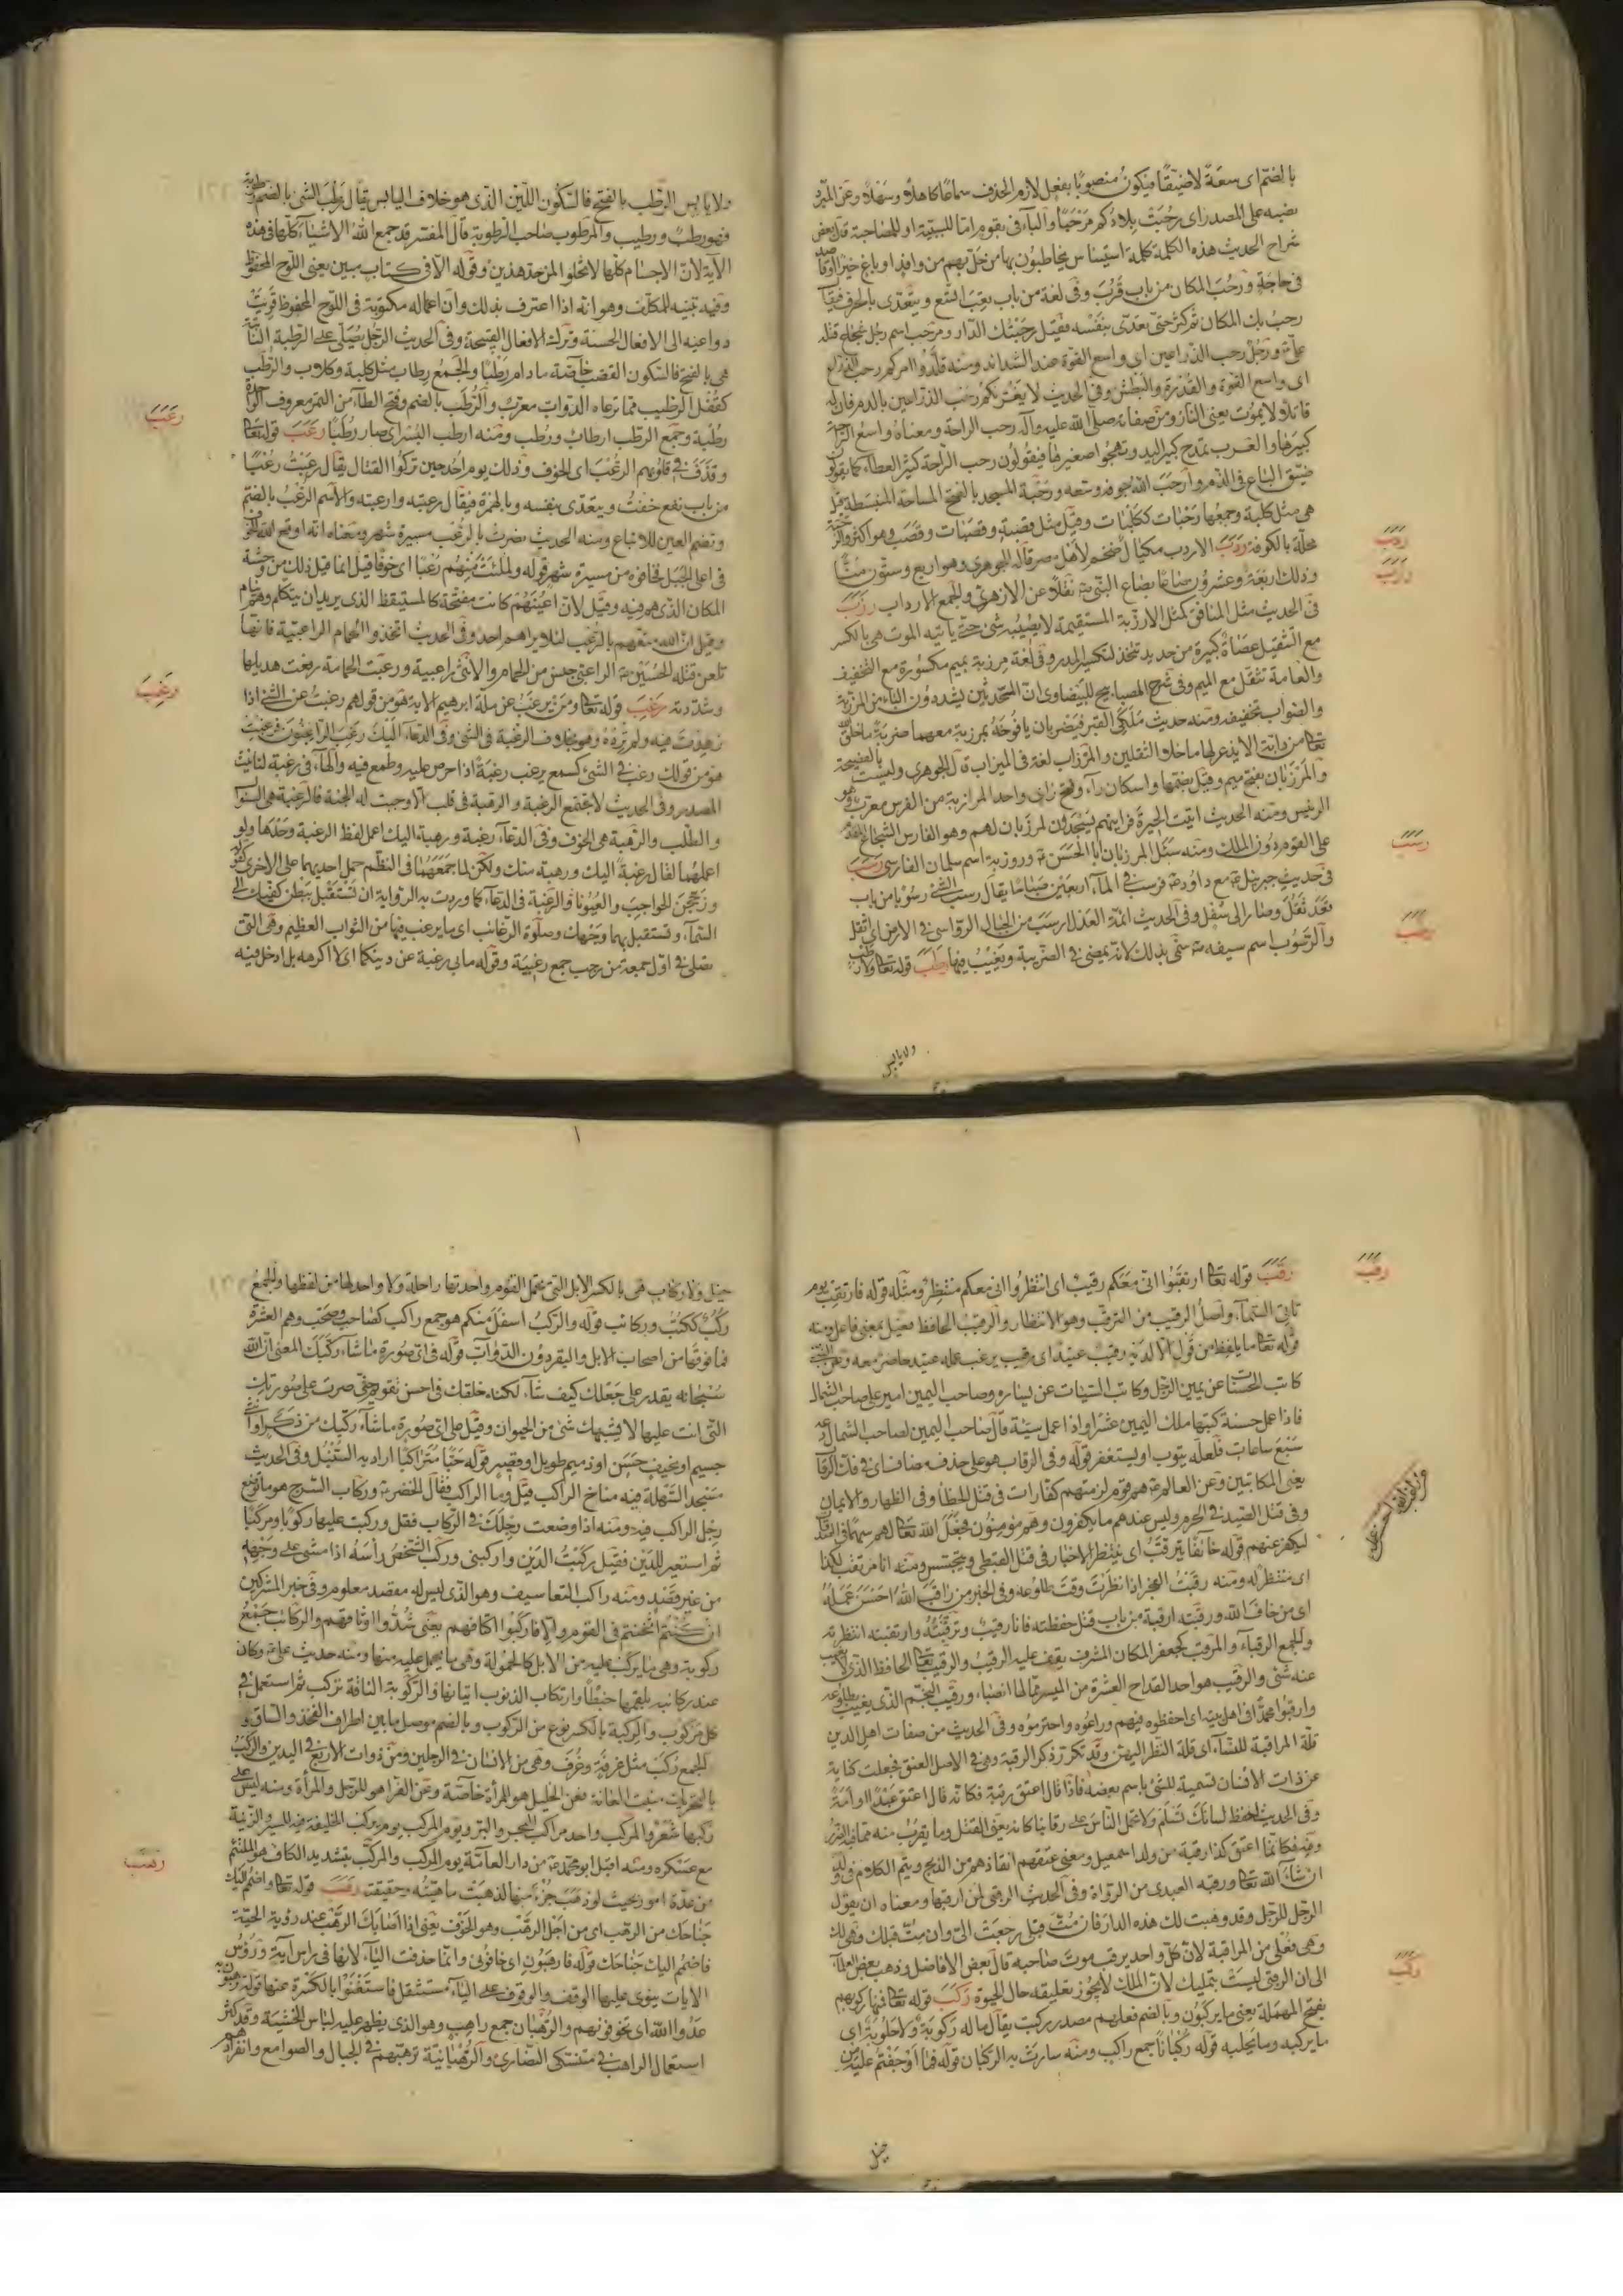 بالضم اى سعة لا ضيقا فيكون منصوبا بفعل لازم الحذف سماعا كاهلا وسهلا وعن المبرد
نصبه على المصدر اى رحبت بلادكم مرحبا والباء فى بقوم اما للسببية او للمصاحبة قال بعض
شراح الحديث هذه الكلمة كلمة استيناس يخاطبون بها من حل بهم من وافد او باغ خير
فى حاجة ورحب المكان من باب قرب وفى لغة من باب تعب اتسع ويتعدى بالحرف فيقال
رحب بك المكان ثم كثر حتى تعدى بنفسه فقيل رحبتك الدار ومرحب اسم رجل شجاع قتله
على ع ورجل رحب الذراعين اى واسع القوة عند الشدائد ومنه قلدوا امركم رحب الذراع
اى واسع القوة والقدرة والبطش وفى الحديث لا يغرنكم رحب الذراعين بالدم فان له
قاتلا لا يموت يعنى النار ومن صفاته صلى الله عليه وآله رحب الراحة ومعناه واسع الراحة
كبيرها والعرب تمدح كبير اليد وتهجوا صغيرها فيقولون رحب الراحة كثير العطاء كما يقولون
ضيق الباع فى الذم وارحب الله جوفه وسعه ورحبة المسجد بالفتح الساحة المنبسطة قيل
هى مثل كلبة وجمعها رحبات ككلبات وقيل مثل قصبة وقصبات وقصب وهو اكثر والرحبة
محلة بالكوفة ردب الاردب مكيال ضخم لاهل مصر قاله الجوهرى وهو اربع وستون منا
وذلك اربعة وعشرون صاعا بصاع النبى ص نقلا عن الازهرى والجمع الارداب رزب
فى الحديث مثل المنافق كمثل الارزبة المستقيمة لا يصيبه شئ حتى ياتيه الموت هى بالكسر
مع التثقيل عصاة كبيرة من حديد تتخذ لتكسير المدر وفى لغة مرزبة بميم مكسورة مع التخفيف
والعامة تثقل مع الميم وفى شرح المصابيح للبيضاوى ان المحدثين يشددون الباء من المرزبة
والصواب تخفيفه ومنه حديث ملكى القبر فيضربان يافوخه بمرزبة معهما ضربة ما خلق الله
تعا من دابة الا يذعر لها ما خلا الثقلين والمرزاب لغة فى الميزاب قال الجوهرى وليست بالفصيحة
والمرزبان بفتح ميم وقيل بضمها واسكان راء وفتح زاى واحد المرازبة من الفرس معرب وهو
الرئيس ومنه الحديث اتيت الحيرة فرايتهم يسجدون لمرزبان لهم وهو الفارس الشجاع المقدم
على القوم دون الملك ومنه سئل المرزبان ابا الحسن ع وروزبة اسم سلمان الفارسى رسب
فى حديث جبرئيل ع مع داود ع فرسب فى الماء اربعين صباحا يقال رسب الشئ رسوبا من باب
قعد ثقل وصار الى سفل وفى الحديث ائمة العدل ارسب من الجبال الرواسى فى الارض اى اثقل
والرسوب اسم سيفه ص سمى بذلك لانه يمضى فى الضريبة ويغيب فيها رطب قوله تعا ولا رطب
ولا يابس
ردب
رزب
رسب
رطب
ولا يابس الرطب بالفتح فالسكون اللين الذى هو خلاف اليابس يقال رطب الشئ بالضم رطوبة
فهو رطب ورطيب والمرطوب صاحب الرطوبة قال المفسر قد جمع الله الاشياء كلها فى هذه
الآية لان الاجسام كلها لا تخلوا من احد هذين وقوله الا فى كتاب مبين يعنى اللوح المحفوظ
وفيه تنبيه للمكلف وهو انه اذا اعترف بذلك وان اعماله مكتوبة فى اللوح المحفوظ قويت
دواعيه الى الافعال الحسنة وترك الافعال القبيحة وفى الحديث الرجل يصلى على الرطبة النابتة
هى بالفتح فالسكون القضب خاصة ما دام رطبا والجمع رطاب مثل كلبة وكلاب والرطب
كقفل الرطيب مما ترعاه الدواب معرب والرطب بالضم وفتح الطاء من التمر معروف الواحدة
رطبة وجمع الرطب ارطاب ورطب ومنه ارطب البسر اى صار رطبا رعب قوله تعا
وقذف فى قلوبهم الرعب اى الخوف وذلك يوم احد حين تركوا القتال يقال رعبت رعبا
من باب نفع خفت ويتعدى بنفسه وبالهمزة فيقال رعبته وارعبته والاسم الرعب بالضم
وتضم العين للاتباع ومنه الحديث نصرت بالرعب مسيرة شهر ومعناه انه اوقع الله الخوف
فى اعلى الجبل فخافوه من مسيرة شهر قوله ولملئت منهم رعبا اى خوفا قيل انما قيل ذلك من وحشة
المكان الذى هم فيه وقيل لان اعينهم كانت مفتحة كالمستيقظ الذى يريد ان يتكلم وهم نيام
وقيل ان الله منعهم بالرعب لئلا يراهم احد وفى الحديث اتخذوا الحمام الراعبية فانها
تلعن قتلة الحسين ع الراعبى جنس من الحمام والانثى راعبية ورعبت الحمامة رفعت هديلها
وشددته رغب قوله تعا ومن يرغب عن ملة ابرهيم الآية هو من قولهم رغبت عن الشئ اذا
زهدت فيه ولم ترده وهو بخلاف الرغبة فى الشئ وفى الدعاء اليك رغب الراغبون فرغبت
هو من قولك رغب فى الشئ كسمع يرغب رغبة اذا حرص عليه وطمع فيه والهاء فى رغبة لتانيث
المصدر وفى الحديث لا تجتمع الرغبة والرهبة فى قلب الا وجبت له الجنة فالرغبة هى السؤال
والطلب والرهبة هى الخوف وفى الدعاء رغبة ورهبة اليك اعمل لفظ الرغبة وحدها ولو
اعملهما لقال رغبة اليك ورهبة منك ولكن لما جمعهما فى النظم حمل احديهما على الاخرى كقوله
وزججن الحواجب والعيونا والرغبة فى الدعاء كما وردت به الرواية ان تستقبل ببطن كفيك الى
السماء وتستقبل بهما وجهك وصلوة الرغائب اى ما يرغب فيها من الثواب العظيم وهى التى
تصلى فى اول جمعة من رجب جمع رغيبة وقوله ما بى رغبة عن دينكما اى لا اكرهه بل ادخل فيه
رعب
رغب
رقب قوله تعا ارتقبوا انى معكم رقيب اى انتظروا انى معكم منتظر ومثله قوله فارتقب يوم
تاتى السماء واصل الرقيب من الترقب وهو الانتظار والرقيب الحافظ فعيل بمعنى فاعل ومنه
قوله تعا ما يلفظ من قول الا لديه رقيب عتيد اى رقيب يرقب عمله عتيد حاضر معه وعن النبى
كاتب الحسنات عن يمين الرجل وكاتب السيئات عن يساره وصاحب اليمين امير على صاحب الشمال
فاذا عمل حسنة كتبها ملك اليمين عشرا واذا عمل سيئة قال صاحب اليمين لصاحب الشمال دعه
سبع ساعات فلعله يتوب او يستغفر قوله وفى الرقاب هو على حذف مضاف اى فى فك الرقاب
يعنى المكاتبين وعن العالم ع هم قوم لزمتهم كفارات فى قتل الخطاء وفى الظهار والايمان
وفى قتل الصيد فى الحرم وليس عندهم ما يكفرون وهم مؤمنون فجعل الله تعا لهم سهما فى الصدقات
ليكفر عنهم قوله خائفا يترقب اى ينتظر الاخبار فى قتل القبطى ويتجسس ومنه انا مرتقب لكذا
اى منتظر له ومنه رقبت الفجر اذا نظرت وقت طلوعه وفى الخبر من راقب الله احسن عمله
اى من خاف الله ورقبته ارقبه من باب قتل حفظته فانا رقيب وترقبته وارتقبته انتظرته
والجمع الرقباء والمرقب كجعفر المكان المشرف يقف عليه الرقيب والرقيب تعا الحافظ الذى لا يغيب
عنه شئ والرقيب هو احد القداح العشرة من الميسر مما لها انصباء ورقيب النجم الذى يغيب بطلوعه
وارقبوا محمدا فى اهل بيته اى احفظوه فيهم وراعوه واحترموه وفى الحديث من صفات اهل الدين
قلة المراقبة للنساء اى قلة النظر اليهن وقد تكرر ذكر الرقبة وهى فى الاصل العنق فجعلت كناية
عن ذات الانسان تسمية للشئ باسم بعضه فاذا قال اعتق رقبة فكانه قال اعتق عبدا او امة
وفى الحديث احفظ لسانك تسلم ولا تحمل الناس على رقابنا كانه يعنى القتل وما يقرب منه مما فيه الضرر
وفيه فكانما اعتق كذا رقبة من ولد اسمعيل ومعنى عتقهم انقاذهم من الذبح ويتم الكلام فى ولد
ان شاء الله تعا ورقبه العبدى من الرواة وفى الحديث الرقبى لمن ارقبها ومعناه ان يقول
الرجل للرجل وقد وهبت لك هذه الدار فان مت قبلى رجعت الى وان مت قبلك فهى لك
وهى فعلى من المراقبة لان كل واحد يرقب موت صاحبه قال بعض الافاضل وذهب بعض العلماء
الى ان الرقبى ليست بتمليك لان الملك لا يجوز تعليقه حال الحيوة ركب قوله تعا فمنها ركوبهم
بفتح المهملة يعنى ما يركبون وبالضم فعلهم مصدر ركبت يقال ماله ركوبة ولا حلوبة اى
ما يركبه وما يحلبه قوله ركبانا جمع راكب ومنه سارت به الركبان قوله فما اوجفتم عليه من
خيل
رقب
ركب
خيل ولا ركاب هى بالكسر الابل التى تحمل القوم واحدتها راحلة ولا واحد لها من لفظها والجمع
ركب ككتب وركائب قوله والركب اسفل منكم هو جمع راكب كصاحب وصحب وهم العشرة
فما فوقها من اصحاب الابل والبقر دون الدواب قوله فى اى صورة ما شاء ركبك المعنى ان الله
سبحانه يقدر على جعلك كيف شاء لكنه خلقك فى احسن تقويم حتى صرت على صورتك
التى انت عليها لا يشبهك شئ من الحيوان وقيل على اى صورة ما شاء ركبك من ذكر او انثى
جسيم او نحيف حسن او ذميم طويل او قصير قوله حبا متراكبا اراد به السنبل وفى الحديث
مسجد السهلة فيه مناخ الراكب قيل وما الراكب فقال الخضر ع وركاب السرج هو ما توضع
رجل الراكب فيه ومنه اذا وضعت رجلك فى الركاب فقل وركبت عليها ركوبا ومركبا
ثم استعير للدين فقيل ركبت الدين واركبنى وركب الشخص راسه اذا مشى على وجهه
من غير قصد ومنه راكب التعاسيف وهو الذى ليس له مقصد معلوم وفى خبر المشركين
ان كنتم اثخنتم فى القوم والا فاركبوا اكتافهم يعنى شدوا وثاقهم والركاب جمع
ركوبة وهى ما يركب عليه من الابل كالحمولة وهى ما يحمل عليه منها ومنه حديث على ع وكان
عند ركائبه يلقمها خبطا وارتكاب الذنوب اتيانها والركوبة الناقة تركب ثم استعمل فى
كل مركوب والركبة بالكسر نوع من الركوب وبالضم موصل ما بين اطراف الفخذ والساق و
الجمع ركب مثل غرفة وغرف وهى من الانسان فى الرجلين ومن ذوات الاربع فى اليدين والركب
بالتحريك منبت العانة فعن الخليل هو للمراة خاصة وعن الفراء هو للرجل والمرأة ومنه ليس على
ركبها شعر والمركب واحد مراكب البحر والبر ويوم المركب يوم يركب الخليفة فيه للسير والزينة
مع عسكره ومنه اقبل ابو محمد ع من دار العامة يوم المركب والمركب بتشديد الكاف هو الملتئم
من عدة امور بحيث لو ذهب جزء منها لذهبت ماهيته وحقيقته رهب قوله تعا واضمم اليك
جناحك من الرهب اى من اجل الرهب وهو الخوف يعنى اذا اصابك الرهب عند رؤية الحية
فاضمم اليك جناحك قوله فارهبون اى خافونى وانما حذفت الياء لانها فى راس آية ورؤس
الآيات ينوى عليها الوقف والوقوف على الياء مستثقل فاستغنوا بالكسرة عنها قوله ترهبون به
عدو الله اى تخوفونهم والرهبان جمع راهب وهو الذى يظهر عليه لباس الخشية وقد كثر
استعمال الراهب فى متنسكى النصارى والرهبانية ترهبهم فى الجبال والصوامع وانفرادهم
رهب